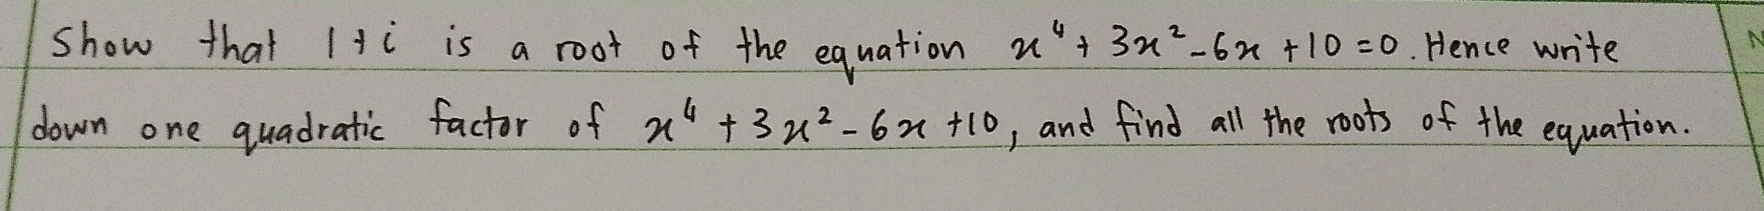 Show that 1+i is a root of the equation x⁴ + 3x² - 6x + 10 = 0. Hence write
down one quadratic factor of x⁴ + 3x² - 6x + 10, and find all the roots of the equation.